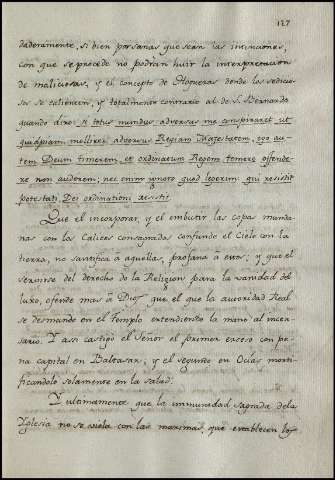 127
daderamente, si bien por sanas que sean las intenciones,
con que se procede no podrán huir la interpretacion
de maliciosas, y el concepto de Hogueras donde los sedicio-
sos se calienten, y totalmente contrario al de S. Bernardo
quando dixo: si totus mundus adversus me conspiraret ut
quidpiam molirer adversus Regiam Magestatem, ego au-
tem Deum timerem, et ordinatum Regem temere offende
re non auderem; nec enim ignoro quod legerim qui resistit
potestati, Dei ordinationi resistit.
Que el incorporar, y el embutir las copas munda-
nas con los Calices consagrados confunde el Cielo con la
tierra, no santifica à aquellas, profana à estos; y que el
servirse del derecho de la Religion para la vanidad del
luxo, ofende mas à Dios que el que la autoridad Real
se desmande en el Templo extendiendo la mano al incen-
sario. Y asi castigó el Señor el primer exceso con pe-
na capital en Baltasar; y el segundo en Ocias morti-
ficandolo solamente en la salud.
Y ultimamente que la inmunidad sagrada dela
Yglesia no se viola con las maximas, que establecen los